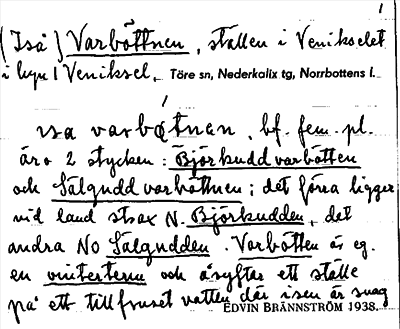 1
(Iså) Varböttnen, ställen i Venikselet
i byn / Veniksel, Töre sn, Nederkalix tg, Norrbottens l.
ɩsa varbøtnen, bf. fem. pl.
äro 2 stycken: Björkuddvarbötten
och Sälguddvarböttnen; det förra ligger
vid land strax N. Björkudden, det
andra NO Sälgudden. Varbötten är eg.
en vinterterm och åsyftar ett ställe
på ett tillfruset vatten där isen är svag
EDVIN BRÄNNSTRÖM 1938.